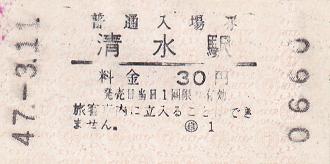 普通入場券
清水駅
料金 30円
発売日当日1回限り有効
旅客車内に立入ることはでき
ません。 1
47.-3.11
0660